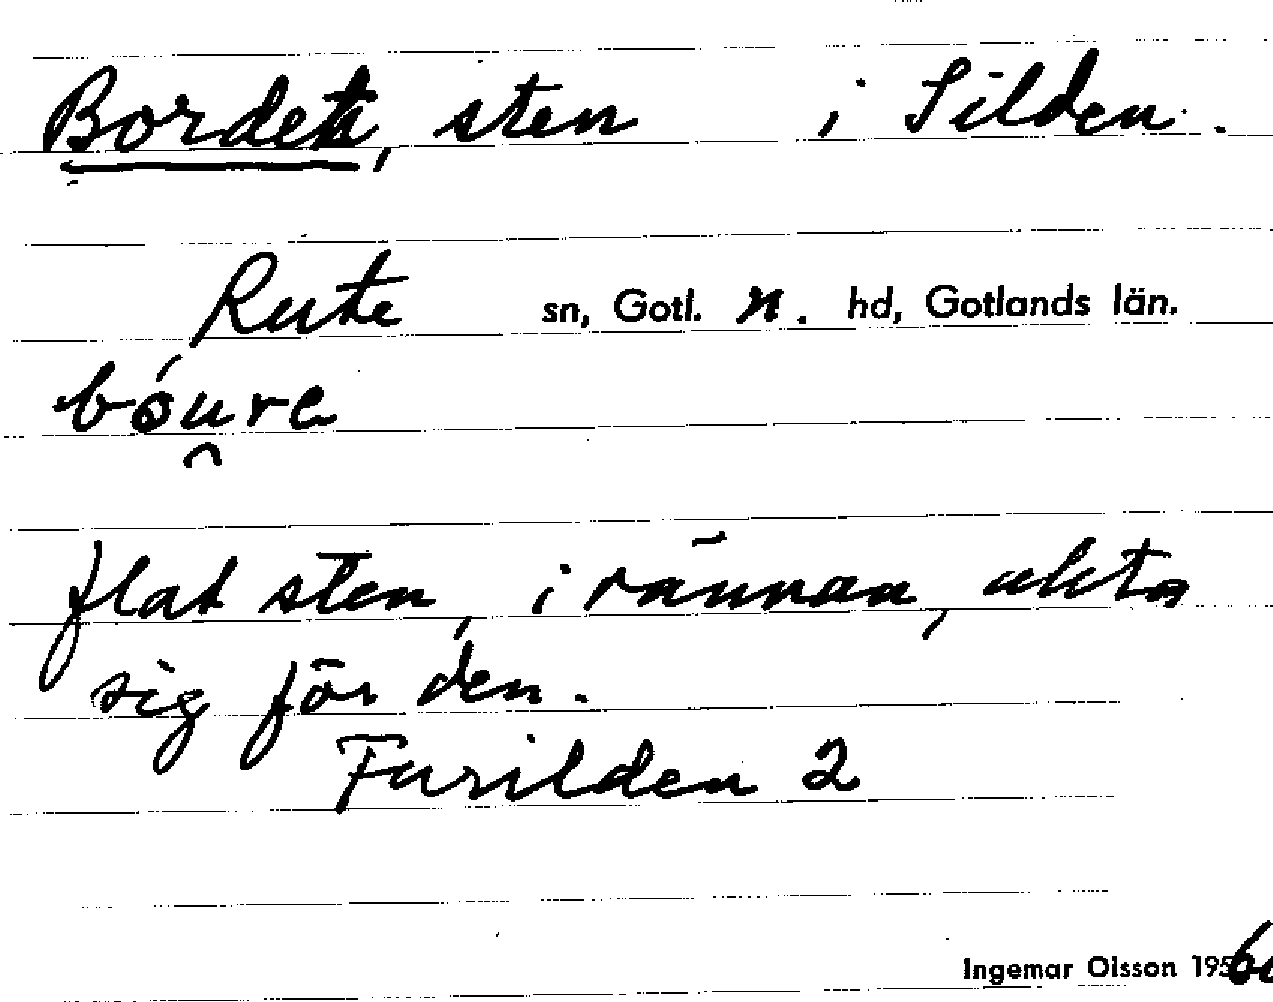 Bordet, sten i Silden.
Rute sn, Gotl. n. hd, Gotlands län.
bóu̯re
flat sten, i rännan, akta
sig för den.
Furilden 2
Ingemar Olsson 195